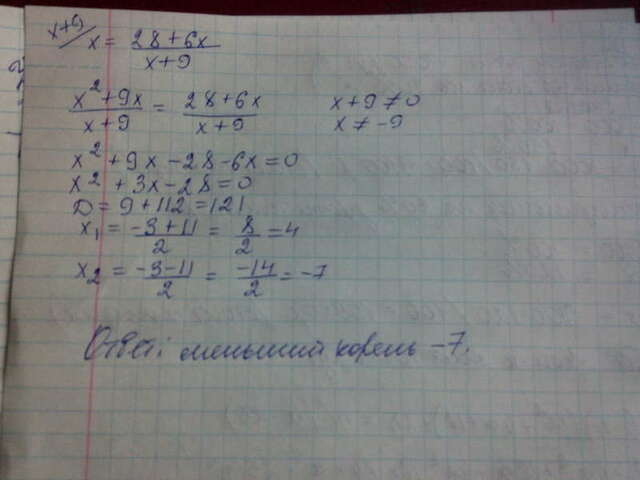 x+9/ x = 28+6x / x+9
x²+9x / x+9 = 28+6x / x+9 x+9≠0
x≠-9
x²+9x-28-6x=0
x²+3x-28=0
D=9+112=121
x₁ = -3+11 / 2 = 8/2 = 4
x₂ = -3-11 / 2 = -14/2 = -7
Ответ: меньший корень -7.